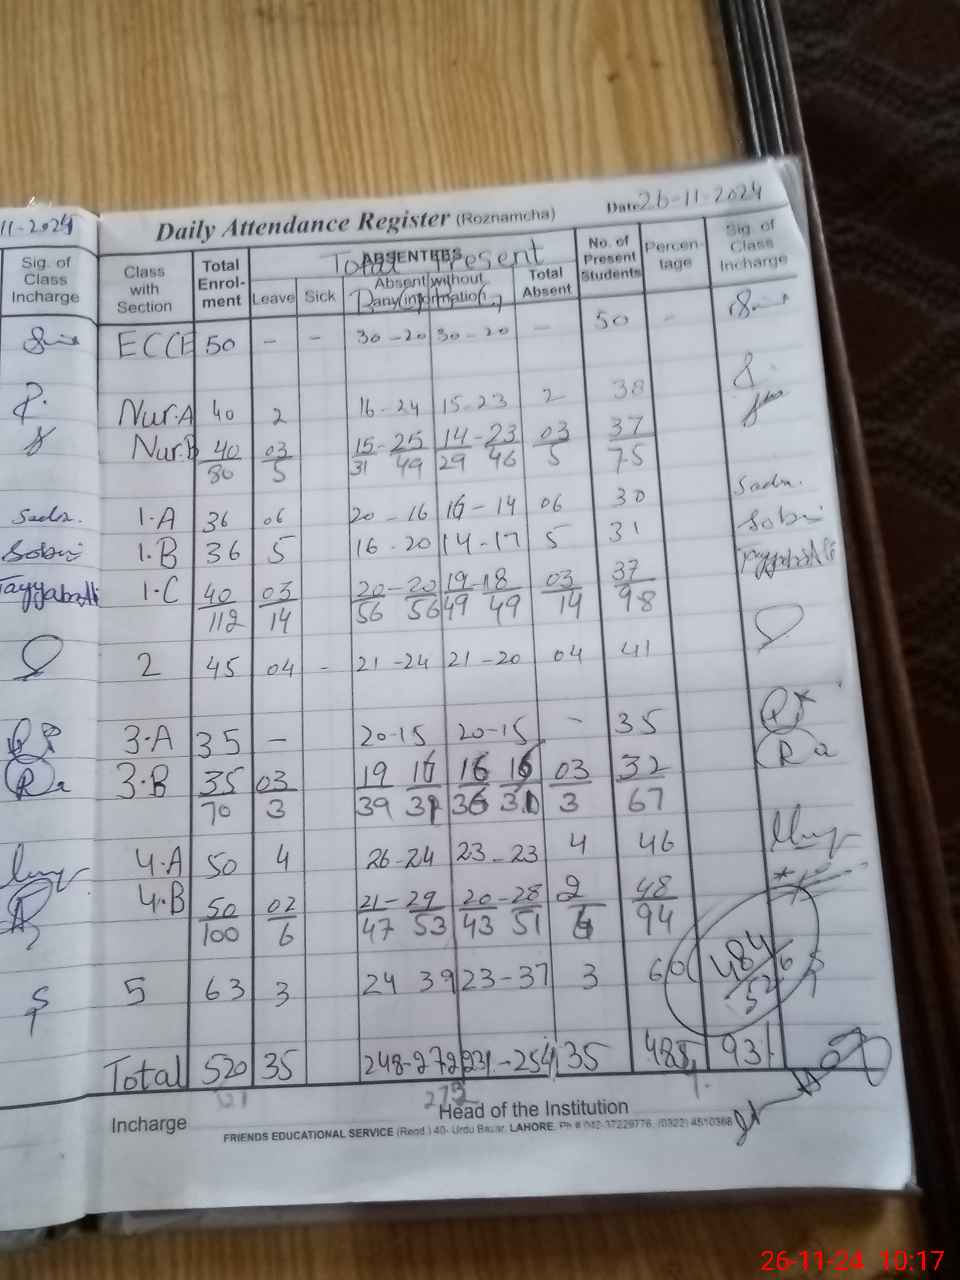 11-2024
Daily Attendance Register (Roznamcha)
Date 26-11-2024
Sig. of Class Incharge
Class with Section
Total Enrol-ment
ABSENTEES
Total Present
Leave
Sick
Absent without any information
Total Absent
No. of Present Students
Percen-tage
Sig. of Class Incharge
ECCE 50 - - 30-20 30-20 - 50 -
Nur.A 40 2 16-24 15-23 2 38
Nur.B 40 03 15-25 14-23 03 37
80 5 31 49 29 46 5 75
Sadia. 1.A 36 06 20-16 16-14 06 30 Sadia.
1.B 36 5 16-20 14-17 5 31
Tayyaba Ali 1.C 40 03 20-20 19-18 03 37 Tayyaba Ali
112 14 56 56 49 49 14 98
2 45 04 - 21-24 21-20 04 41
3.A 35 - 20-15 20-15 - 35
Ra 3.B 35 03 19 16 16 16 03 32 Ra
70 3 39 31 36 31 3 67
4.A 50 4 26-24 23-23 4 46
4.B 50 02 21-29 20-28 2 48
100 6 47 53 43 51 6 94
484
526
5 63 3 24 39 23-37 3 60
Total 520 35 248-272 231-254 35 485 93%
272
Incharge
Head of the Institution
FRIENDS EDUCATIONAL SERVICE (Regd.) 40- Urdu Bazar, LAHORE. Ph # 042-37229776, (0322) 4510366
26-11-24 10:17